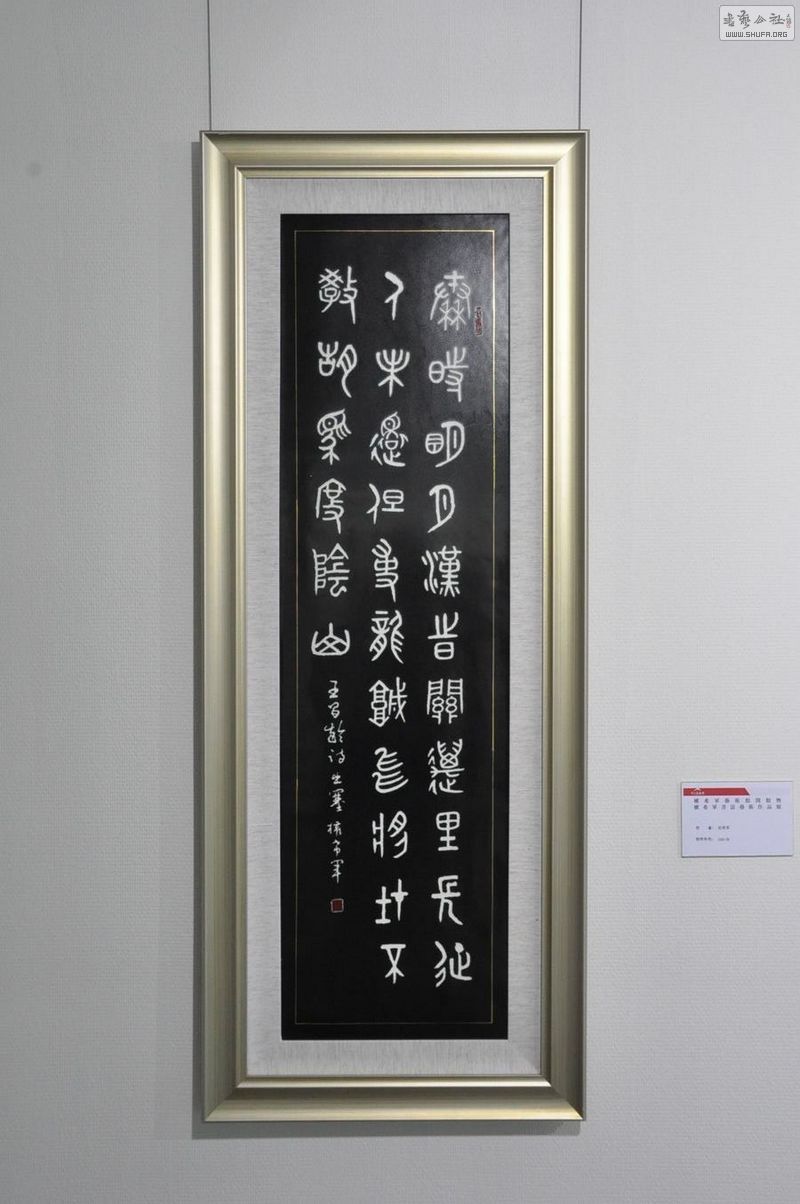 書藝公社
WWW.SHUFA.ORG
秦時明月漢旹關萬里長征
人未還但使龍城飛將在不
教胡馬度陰山
王昌齡詩出塞